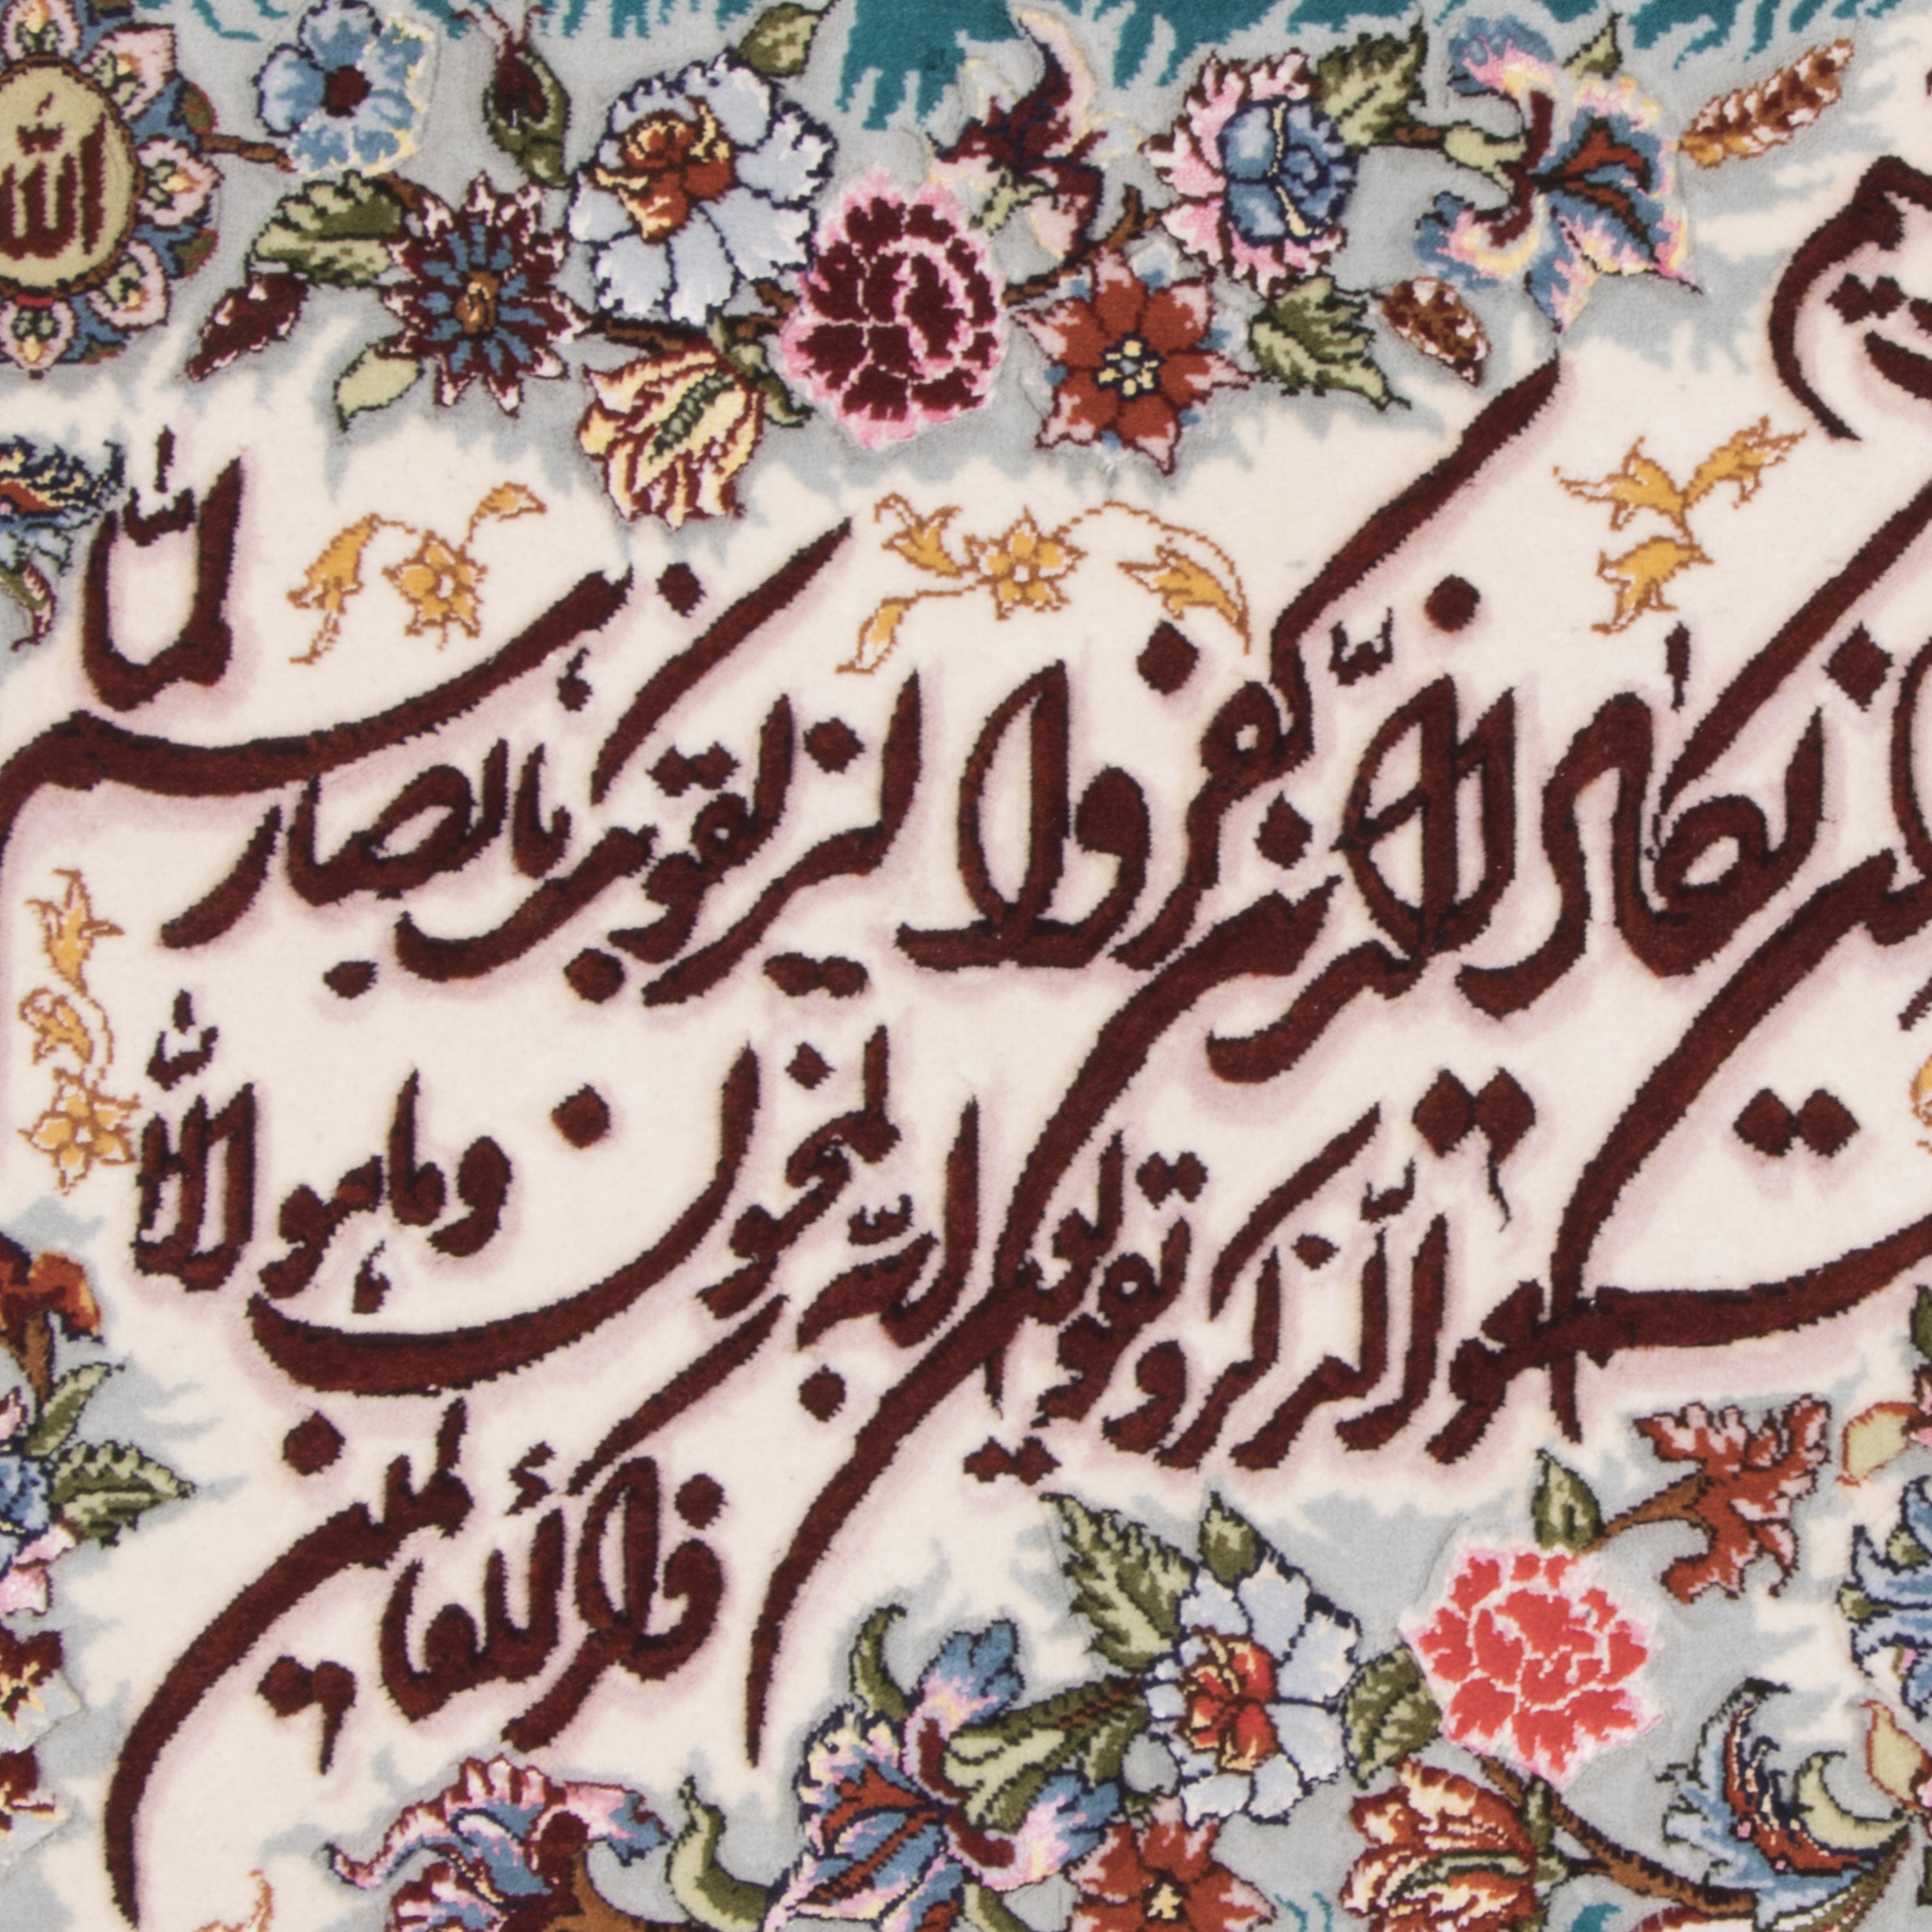 الله
یکاد الذین کفروا لیزلقونک بابصارهم لمّا
سمعوا الذکر و یقولون انّه لمجنون و ما هو الّا
ذکرٌ للعالمین